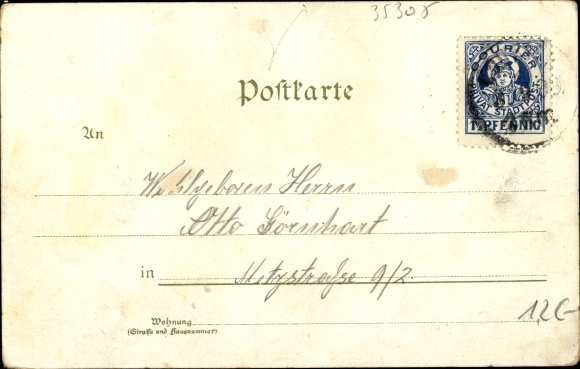 35308
COURIER
PRIVAT STADTPOST
PFENNIG
Postkarte
An
Wohlgeboren Herrn
Otto Görnhart
in Metzstraße 9/2.
Wohnung
(Straße und Hausnummer)
12,-